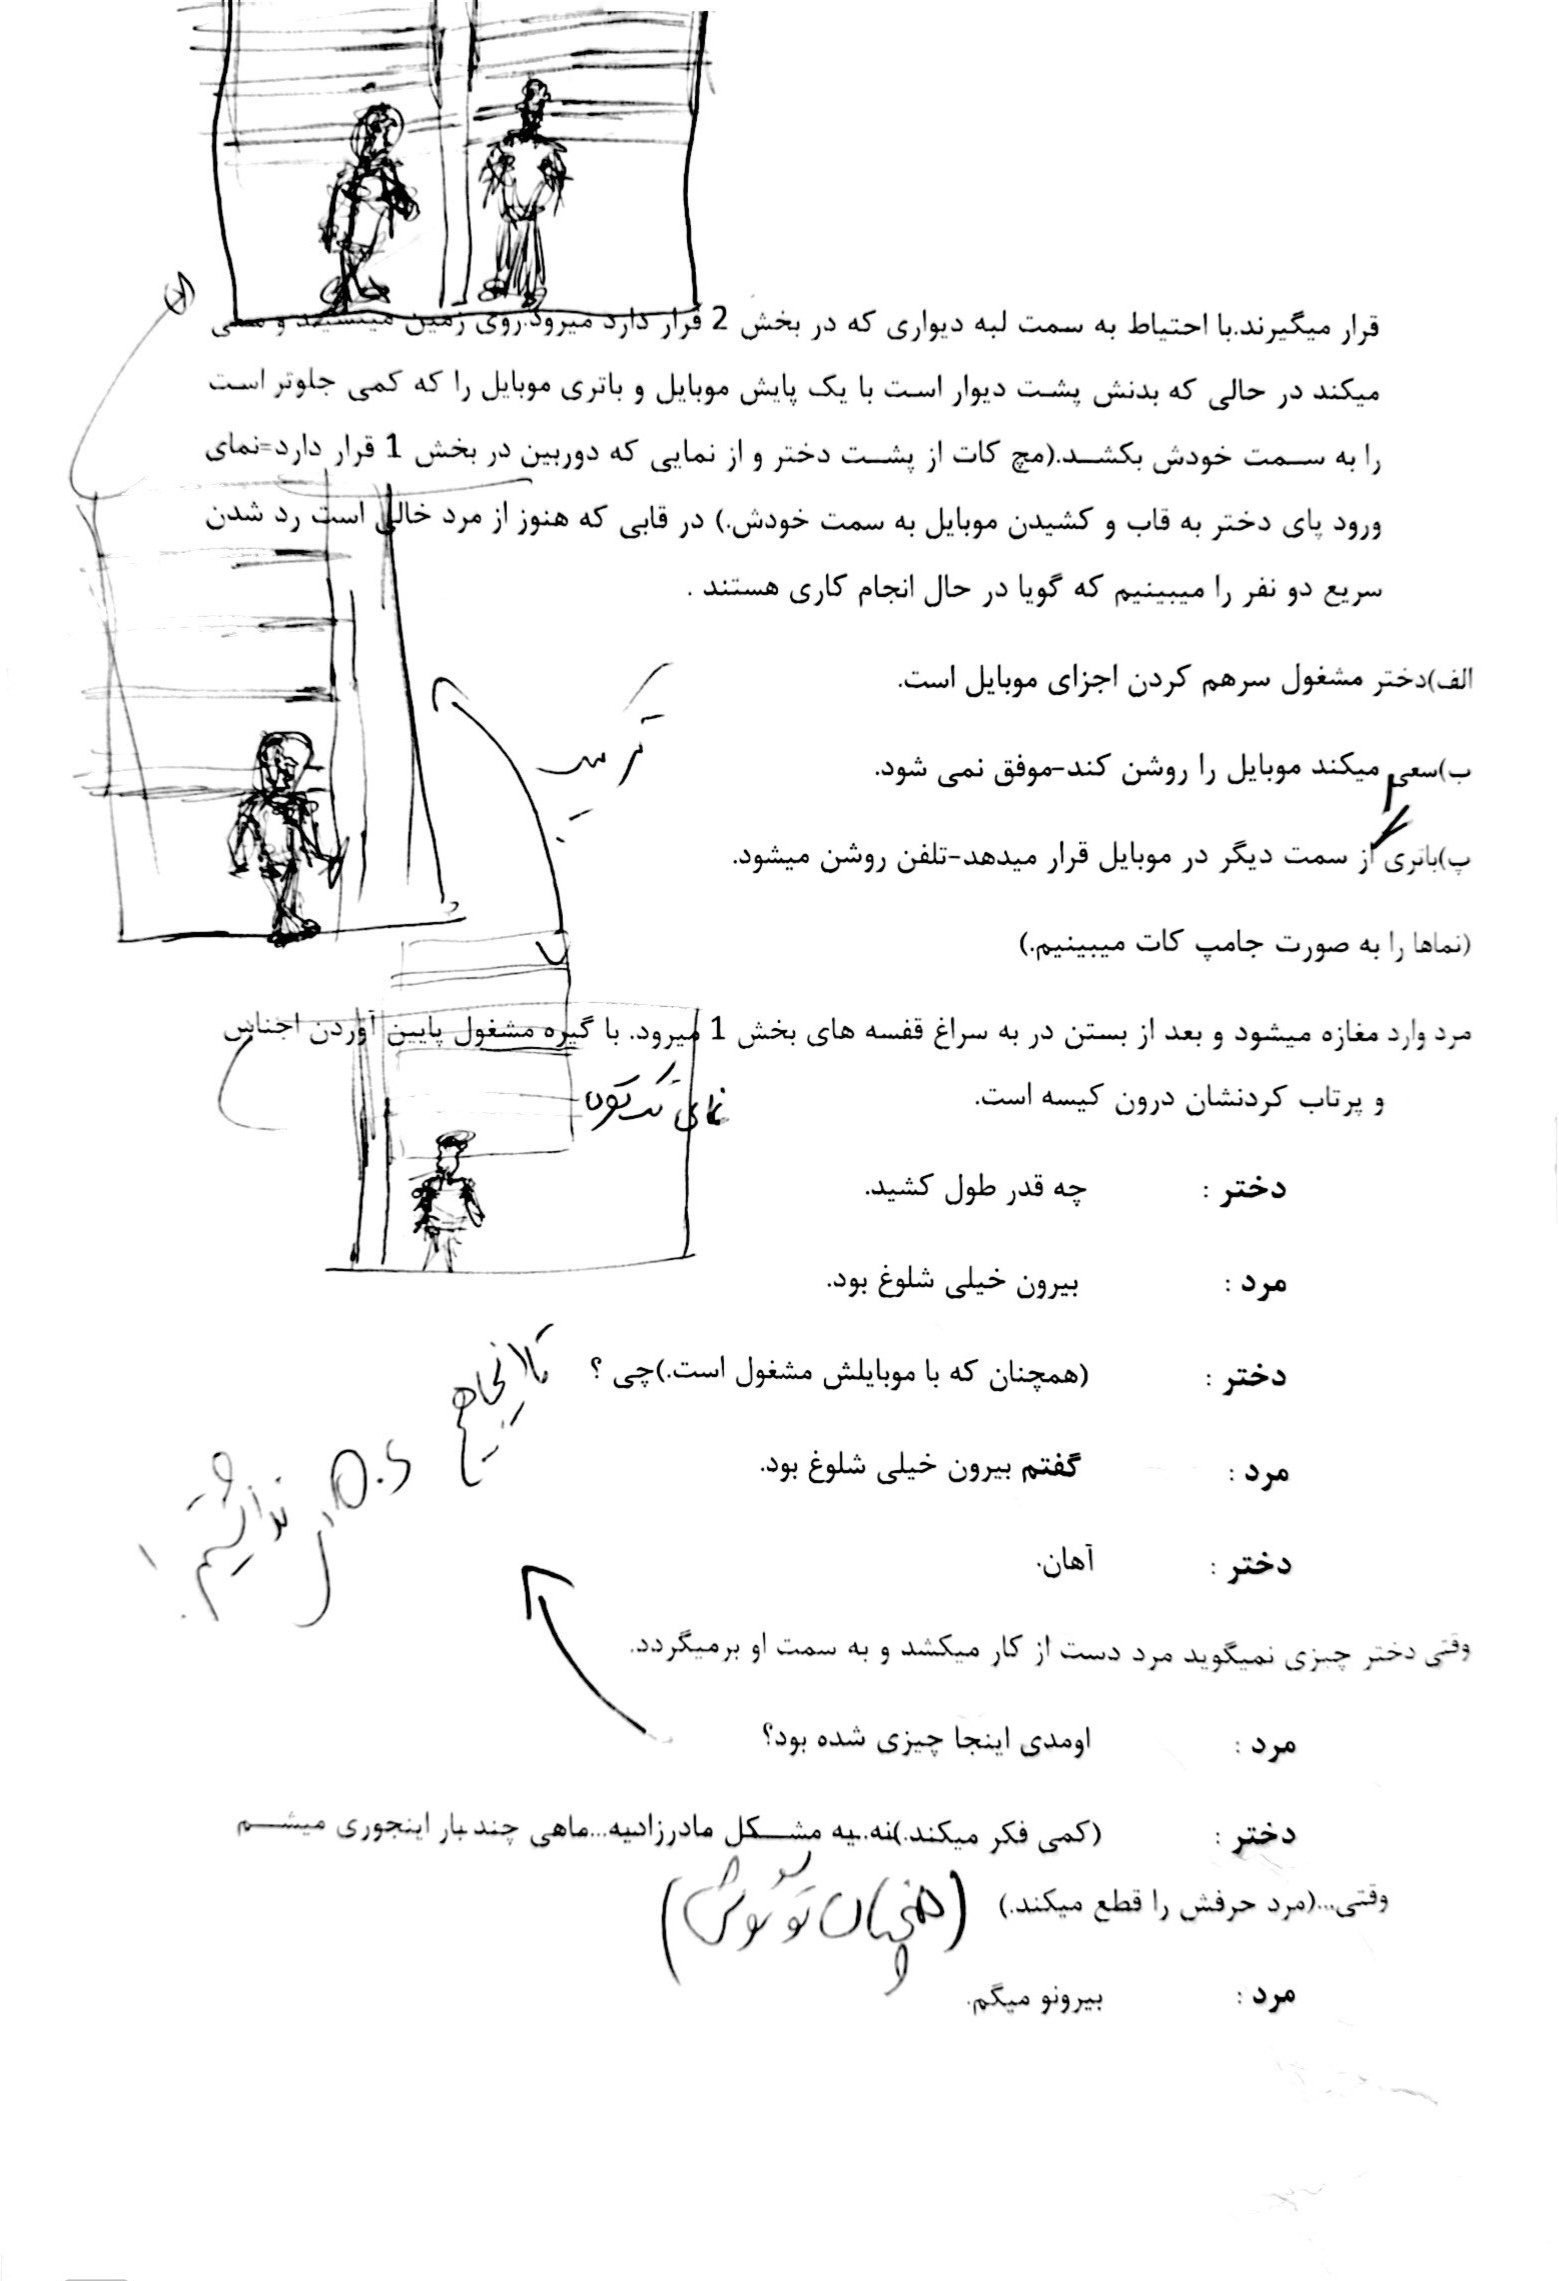 قرار میگیرند.با احتیاط به سمت لبه دیواری که در بخش 2 قرار دارد میرود.روی زمین مینشیند و سعی
میکند در حالی که بدنش پشت دیوار است با یک پایش موبایل و باتری موبایل را که کمی جلوتر است
را به سمت خودش بکشد.(مچ کات از پشت دختر و از نمایی که دوربین در بخش 1 قرار دارد=نمای
ورود پای دختر به قاب و کشیدن موبایل به سمت خودش.) در قابی که هنوز از مرد خالی است رد شدن
سریع دو نفر را میبینیم که گویا در حال انجام کاری هستند .
الف)دختر مشغول سرهم کردن اجزای موبایل است.
ب)سعی میکند موبایل را روشن کند-موفق نمی شود.
پ)باتری از سمت دیگر در موبایل قرار میدهد-تلفن روشن میشود.
(نماها را به صورت جامپ کات میبینیم.)
مرد وارد مغازه میشود و بعد از بستن در به سراغ قفسه های بخش 1 میرود. با گیره مشغول پایین آوردن اجناس
و پرتاب کردنشان درون کیسه است.
نمای
دختر : چه قدر طول کشید.
مرد : بیرون خیلی شلوغ بود.
دختر : (همچنان که با موبایلش مشغول است.)چی ؟
مرد : گفتم بیرون خیلی شلوغ بود.
دختر : آهان.
تا اینجا هیچ O.S ای نداشتیم!
وقتی دختر چیزی نمیگوید مرد دست از کار میکشد و به سمت او برمیگردد.
مرد : اومدی اینجا چیزی شده بود؟
دختر : (کمی فکر میکند.)نه.یه مشکل مادرزادیه...ماهی چند بار اینجوری میشم
وقتی...(مرد حرفش را قطع میکند.) (همچنان تو گوشی)
مرد : بیرونو میگم.